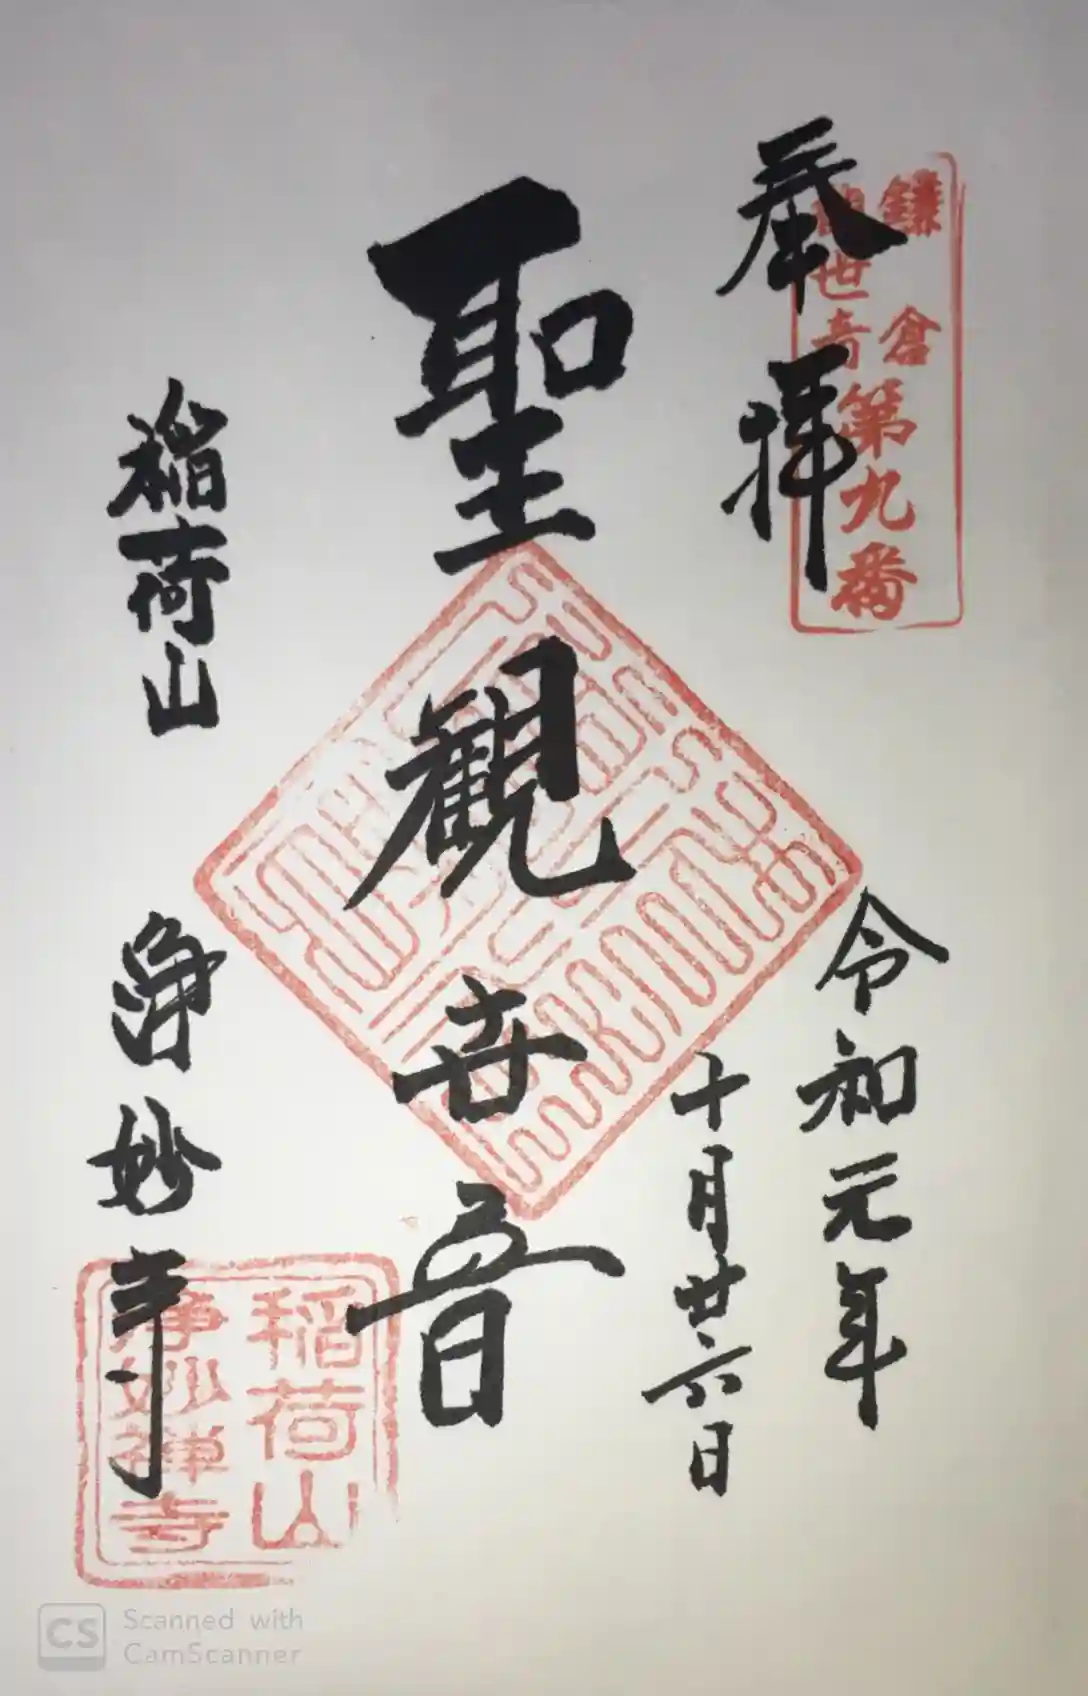 奉拝
鎌倉
観世音第九番
令和元年
十月廿六日
聖観世音
稲荷山
浄妙寺
稲荷山
浄妙禅寺
CS Scanned with
CamScanner